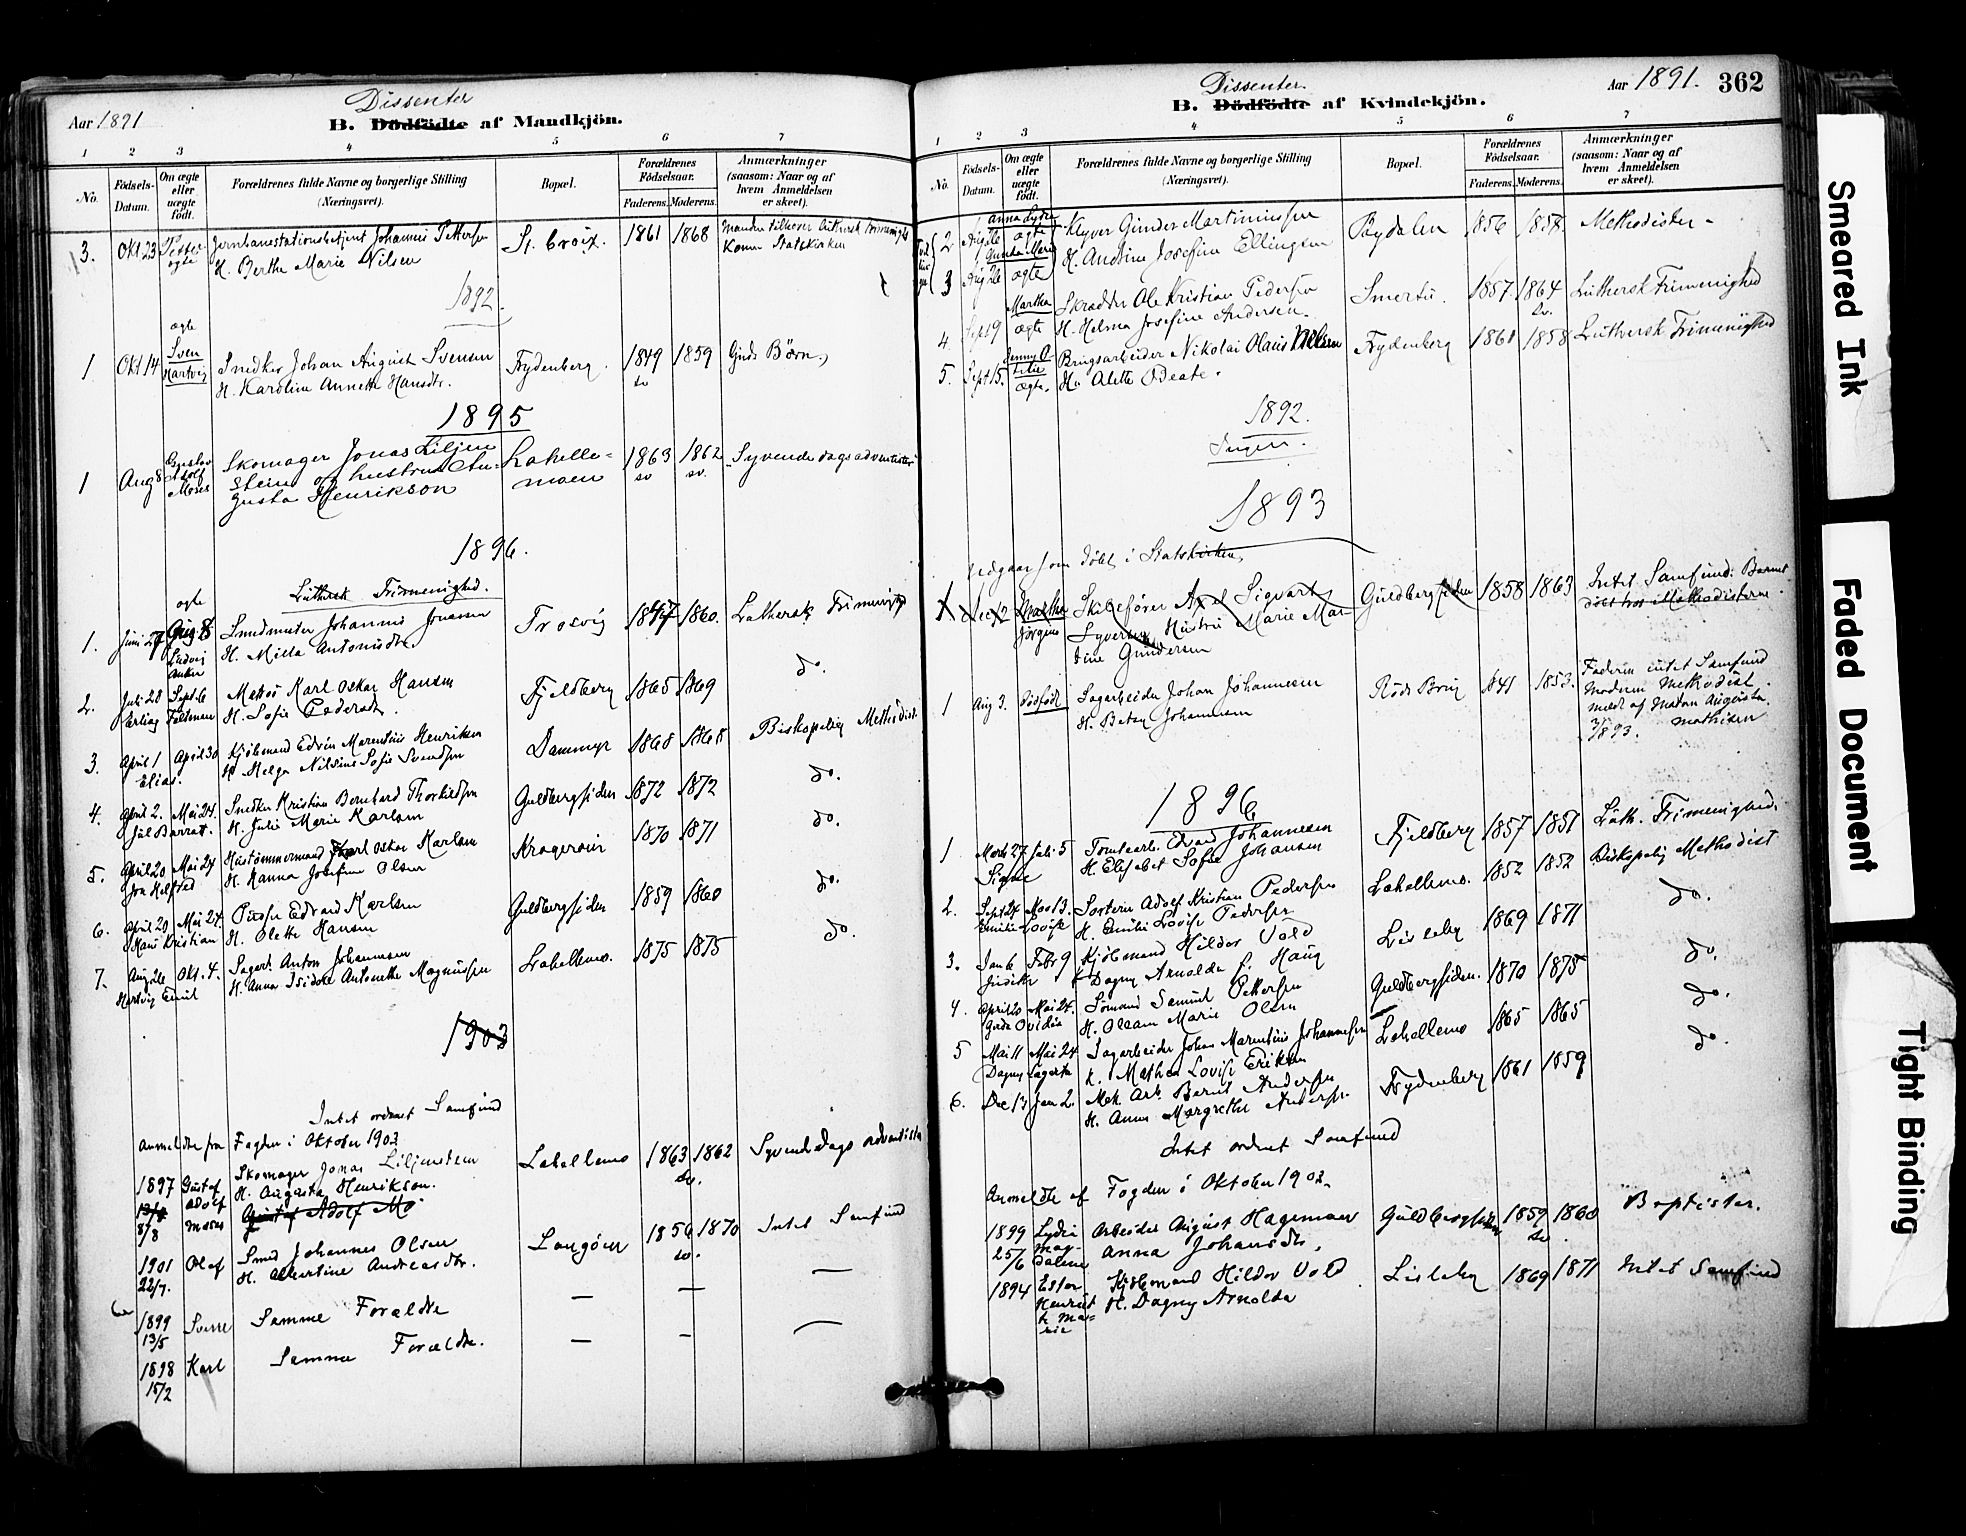 Dissenter
Aar 1891
B. Dödfödte af Mandkjön.
1 2 3 4 5 6 7
No.
Födsels-Datum.
Om ægte eller uægte födt.
Forældrenes fulde Navne og borgerlige Stilling
(Næringsvei).
Bopæl.
Forældrenes Födselsaar.
Faderens. Moderens.
Anmærkninger
(saasom: Naar og af
hvem Anmeldelsen
er skeet).
3. Okt 23 Petter Jernbanestationsbetjent Johannes Pettersen St. Croix. 1861 1868
ægte H. Berthe Marie Nilsen Konen Statskirken
1892.
ægte
1 Okt 14 Sven Snedker Johan August Svensen Frydenberg. 1849 1859
Hartvig H. Karoline Annette Hansdtr. sv
1895
1 Aug 8 Gustav Skomager Jonas Liljen Lahelle- 1863 1862 Syvende dags adventister
Adolf stein og hustru Au- moen sv sv.
Moses gusta Henrikson
1896.
Luthersk Frimenighed.
ægte
1. Juni 27 Aug 8 Smedmester Johannes Jonassen Trosvig 1847 1860. Luthersk Frimenighed
Ludvig H. Milla Antonisdtr
Anker
2. Juli 28 Sept. 6 Karl Oskar Hansen Fjeldberg 1865 1869 do.
Erling H. Sofie Pedersdtr.
3. April 1 April 30 Kjöbmand Edvin Marentius Henriksen Dammyr 1868 1868 Biskopelig Methodist
Elias. H. Helga Nilsine Sofie Svendsen
4. April 2. Mai 24. Snedker Kristian Bernhard Thorkildsen Guldbergsiden 1872 1872 do.
Jul Barratt. H. Julie Marie Karlsen
5. April 20 Mai 24 Hustömmermand Karl Oskar Karlsen Krageröen 1870 1871 do.
H. Hanna Josefine Olsen
6. April 20 Mai 24. Edvard Karlsen Guldbergsiden 1859 1860 do.
Hans Kristian H. Olette Hansen
7. Aug 26 Okt. 4. Sagarb. Anton Johannesen Lahellemo. 1875 1875 do.
Hartvig Emil H. Anna Isidore Antonette Magnussen
1903
Intet ordnet Samfund
Anmeldte fra Fogden i Oktober 1902
1897 Gustaf Skomager Jonas Liljensteen Lahellemo 1863 1862 Syvendedags adventister
13/8 Adolf H. Augusta Henrikson. Sv.
8/8 Moses Gustaf Adolf Mo
1901 Olaf Smed Johannes Olsen Langöen 1856 1870 Intet Samfund
22/7. H. Albertine Andreasdtr. sv.
1899 Sverre Samme Forældre — — —
13/5
1898 Karl Samme Forældre. — — —
15/2
Dissenter
B. Dödfödte af Kvindekjön.
Aar 1891. 362
1 2 3 4 5 6 7
No.
Födsels-Datum.
Om ægte eller uægte födt.
Forældrenes fulde Navne og borgerlige Stilling
(Næringsvei).
Bopæl.
Forældrenes Födselsaar.
Faderens. Moderens.
Anmærkninger
(saasom: Naar og af
hvem Anmeldelsen
er skeet).
Anna Lydia
2 Aug 26 ægte Gunder Martiniussen Bydalen 1856 1857 Methodister
3 Aug 26 ægte H. Andrine Josefine Ellingsen
4 Sept 9 Martha Skrædder Ole Kristian Pedersen Smertu. 1857 1864 Luthersk Frimenighed
ægte H. Helma Josefine Andersen. Sv.
5. Sept 15. Jenny O- Brugsarbeider Nikolai Olaus Nilsen Frydenberg 1861 1858 Luthersk Frimenighed
ægte. Hu Alette Beate.
1892.
Ingen.
1893
Udgaar som döbt i Statskirken
Skibsförer Axel Sigvart Guldbergsiden 1858 1863 Intet Samfund. Barnet
Jörgine Syvertsen Hustru Marie Mar döbt hos Methodisterne.
tine Gundersen
1 Aug 3. Dödfödt Sagarbeider Johan Johannesen Röds Brug 1841 1853. Faderen intet Samfund
H. Betzy Johannesen Moderen Methodist.
meldt af Madam Augusta
1893. Mathisen
1896
1 Marts 27 Juli 5 Tomtearb. Edvard Johannesen Fjeldberg 1857 1851 Luth. Frimenighed.
Signe H. Elisabet Sofie Johansen
2. Sept 24 Nov 13. Adolf Kristian Pedersen Lahellemo. 1852 1852 Biskopelig Methodist
Emilie Lovise H. Emilie Lovise Pedersen
3. Jan 6 Febr 9 Kjöbmand Hildor Vold Lisleby 1869 1871 do.
Judith Dagny Arnolda f. Haug
4. April 20 Mai 24. Sömand Samuel Pettersen Guldbergsiden. 1870 1875 do.
Gerda Ovidia H. Marie Olsen
5 Mai 11 Mai 24 Sagarbeider Johan Marentius Johannesen Lahellemo 1865 1865 do.
Dagny H. Mathea Lovise Eriksen
6. Dec 13 Jan 2. Mek. Arb. Bernt Andersen Frydenberg 1861 1859 do.
H. Anna Margrethe Andersen.
Intet ordnet Samfund
Anmeldte af Fogden i Oktober 1902
1899 Lydia Arbeider August Hageman Guldbergsiden 1859 1860 Baptister.
25/6 Mag- Anna Johansdtr. Sv
dalene
1894 Ester Kjöbmand Hildor Vold Lisleby 1869 1871 Intet Samfund
Henriet H. Dagny Arnolda
te Ma-
rie
Smeared Ink
Faded Document
Tight Binding